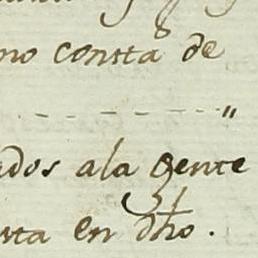 no consta de
- - - - - - - "
ados ala gente
nta en dho.